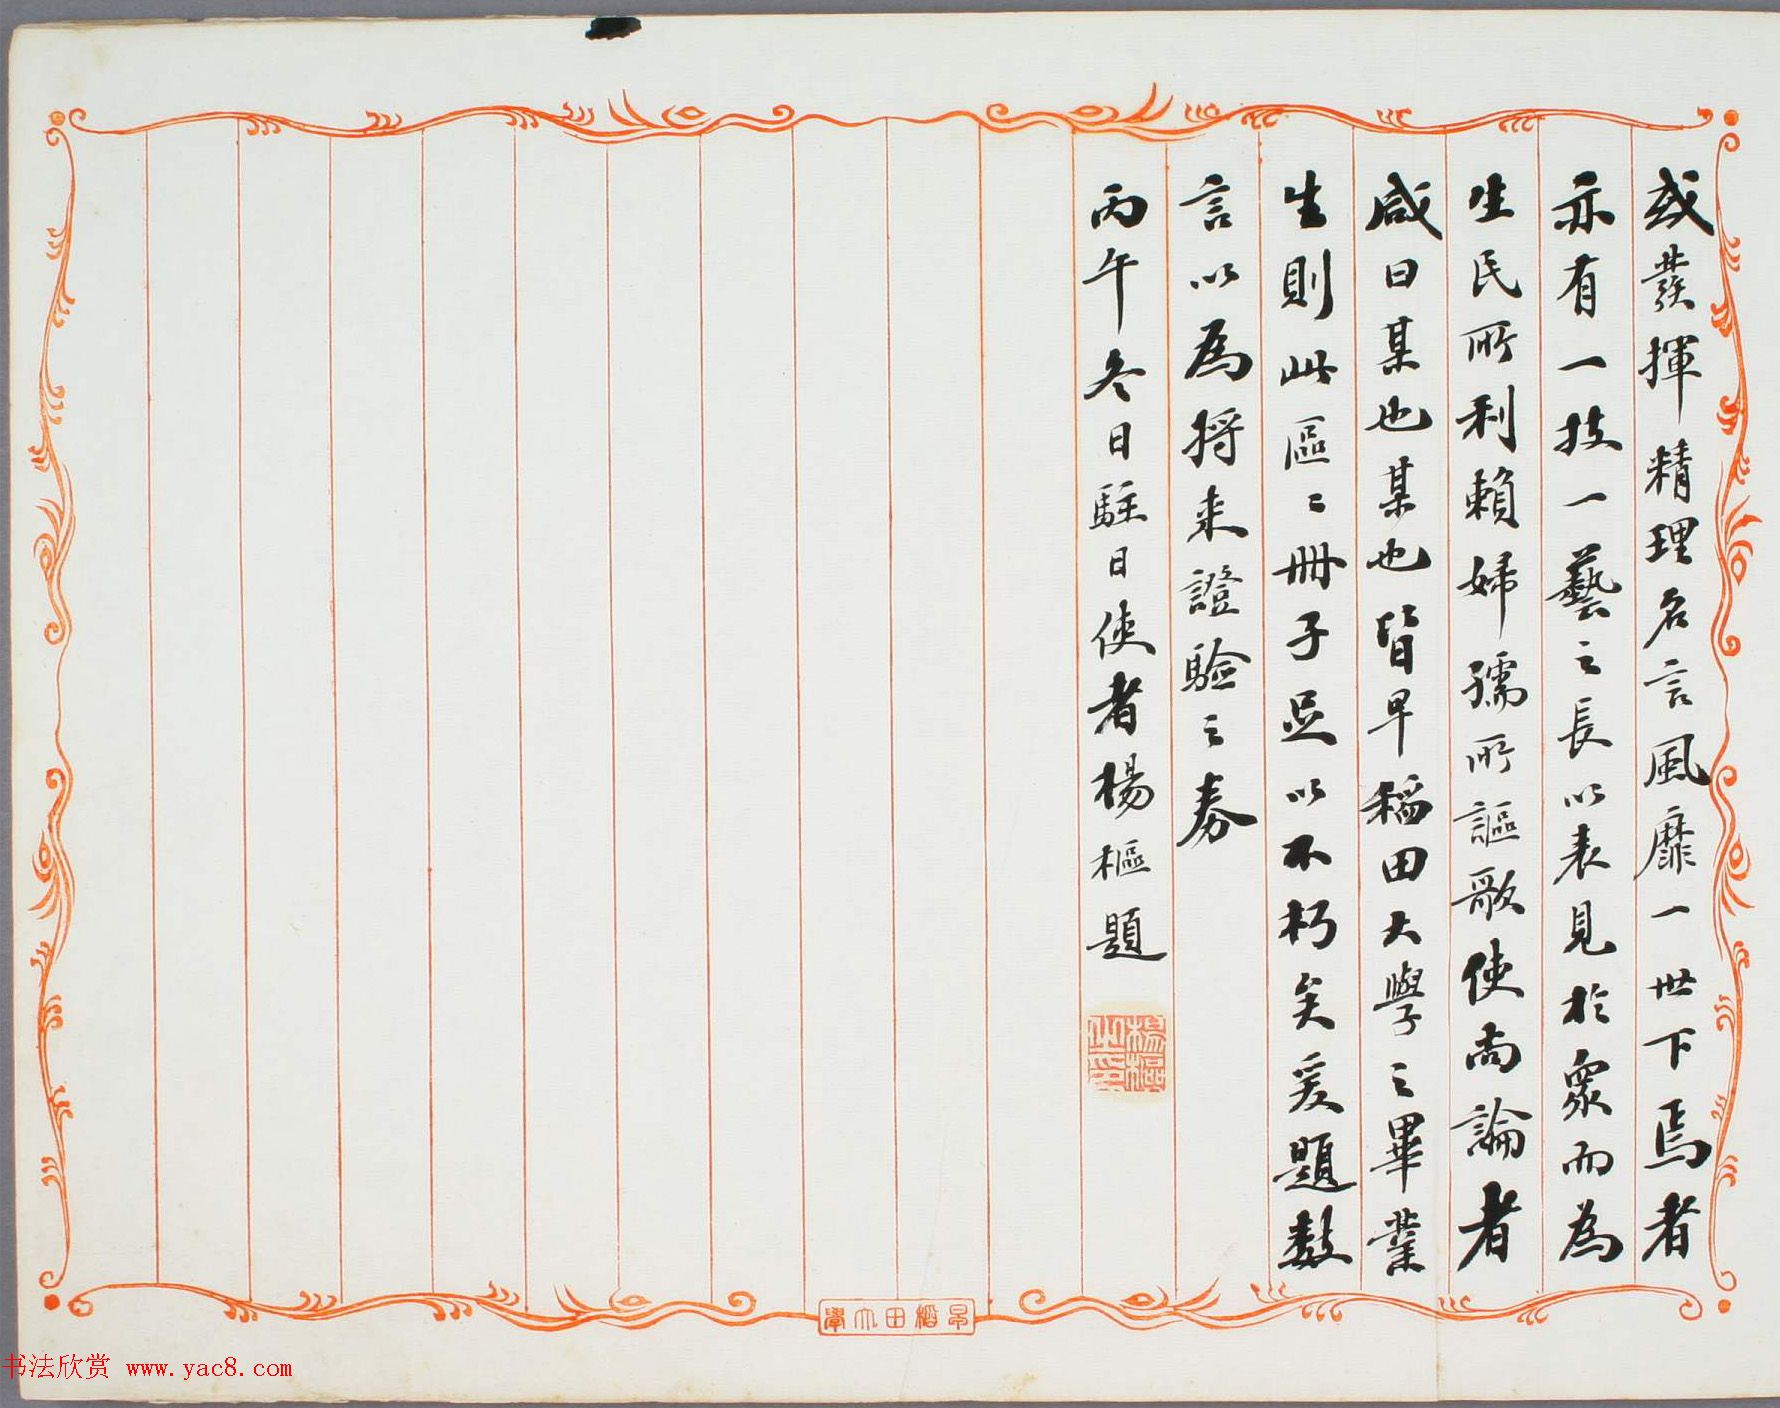 或發揮精理名言風靡一世下焉者
亦有一技一藝之長以表見於眾而為
生民所利賴婦孺所謳歌使尚論者
咸曰某也某也皆早稻田大學之畢業
生則此區〻冊子足以不朽矣爰題數
言以為將來證驗之券
丙午冬日駐日使者楊樞題
楊樞之印
早稻田大學
书法欣赏 www.yac8.com